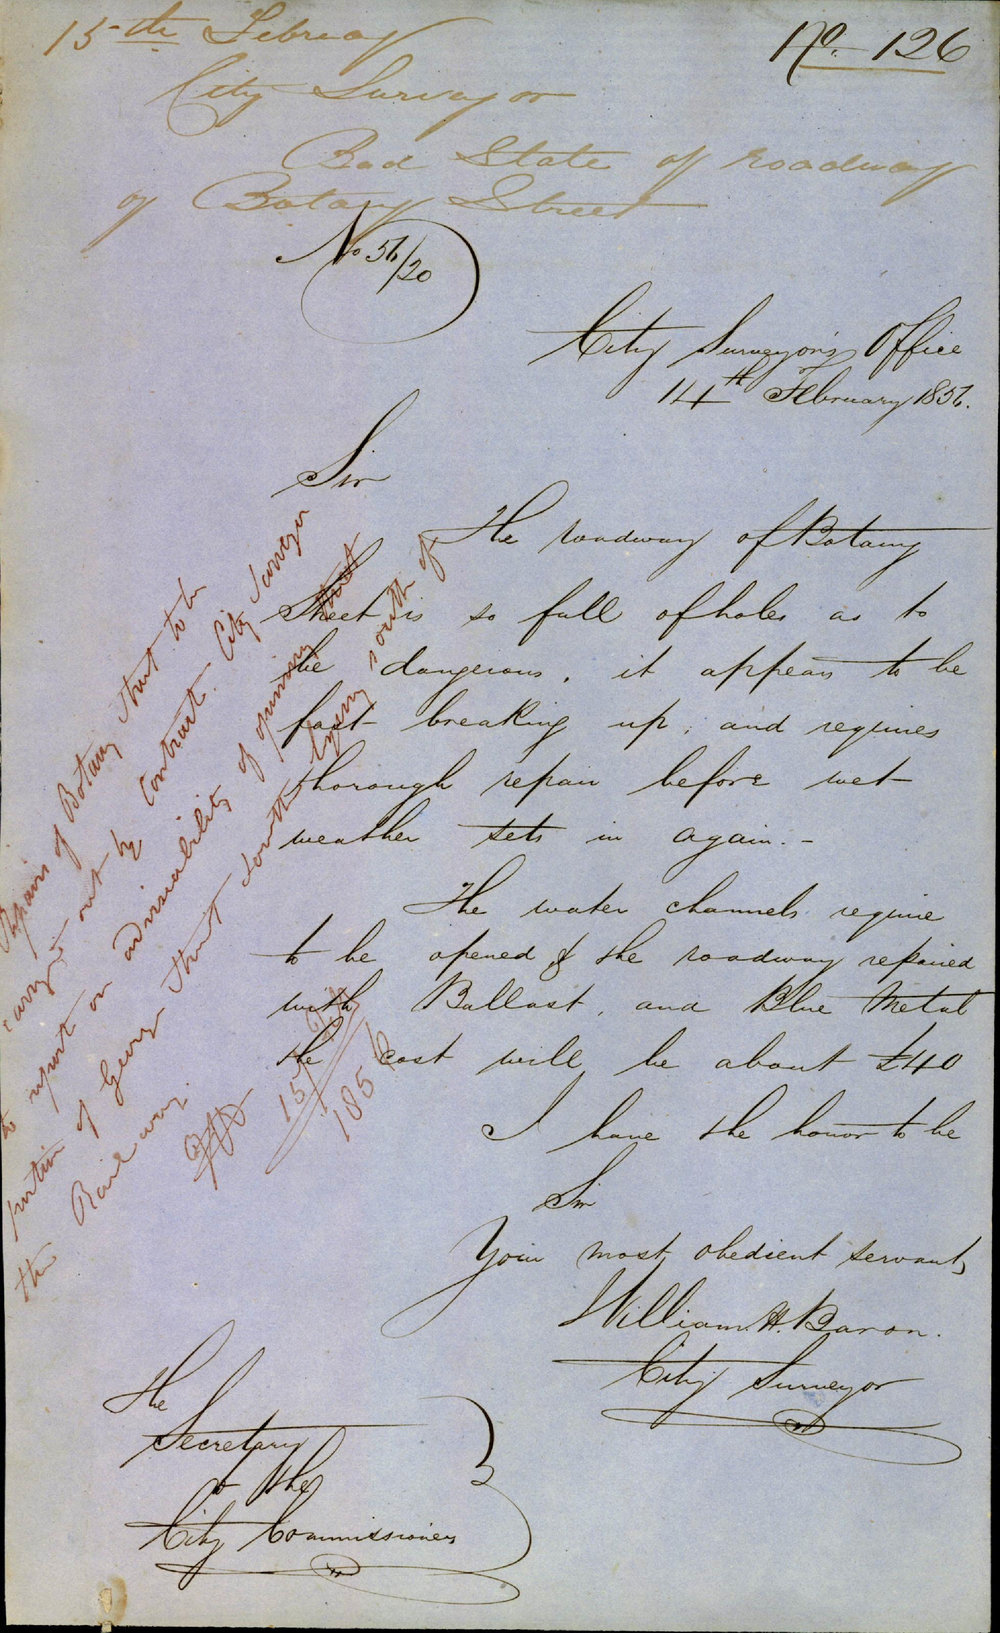 15th Febreay
No. 126
City Surveyor
Bad State of roadway
of Botany Street
No 56/20
City Surveyor's Office
14th February 1856.
Sir
The roadway of Botany
Street is so full of holes as to
be dangerous, it appears to be
fast breaking up; and requires
thorough repair before wet
weather sets in again. -
The water channels require
to be opened & the roadway repaired
with Ballast, and Blue Metal
the cost will be about £40
I have the honor to be
Sir
Your most obedient servant,
William H. Baron.
City Surveyor
The
Secretary
to the
City Commissioners
Repairs of Botany Street to be
carried out by Contract. City Surveyor
to report on admissability of opening that
portion of George Street South lying south of
the Railway
15
1856